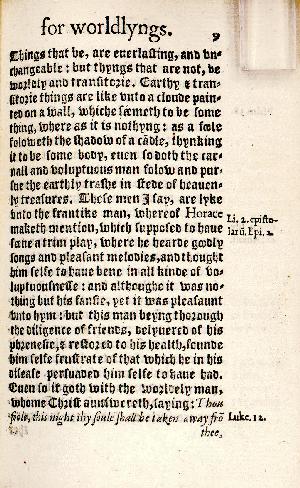 for worldlyngs.
9
Things that be, are euerlasting, and vn-
changeable: but thyngs that are not, be
worldly and transitorie. Earthy & tran-
sitorie things are like vnto a cloude pain-
ted on a wall, whiche sæmeth to be some
thing, where as it is nothyng: as a
foloweth the shadow of a cādle, thynking
it to be some body, euen so doth the car-
nall and voluptuous man folow and pur-
sue the earthly trashe in stede of heauen-
ly treasures. These men I say, are lyke
vnto the frantike man, whereof Horace
maketh mention, which supposed to haue
sene a trim play, where he hearde goodly
songs and pleasant melodies, and thought
him selfe to haue bene in all kinde of vo-
luptuousnesse: and althoughe it was no-
thing but his fansie, yet it was pleasaunt
vnto hym: but this man beyng thorough
the diligence of friends, delyuered of his
phrenesie, & restored to his health, founde
him selfe frustrate of that which he in his
disease persuaded him selfe to haue had.
Euen so it goth with the worldely man,
whome Christ aunswereth, saying: Thou
foole, this night thy soule shall be taken away frō
thee,
Li. 2. episto-
larū. Epi. 2.
Luke. 12.